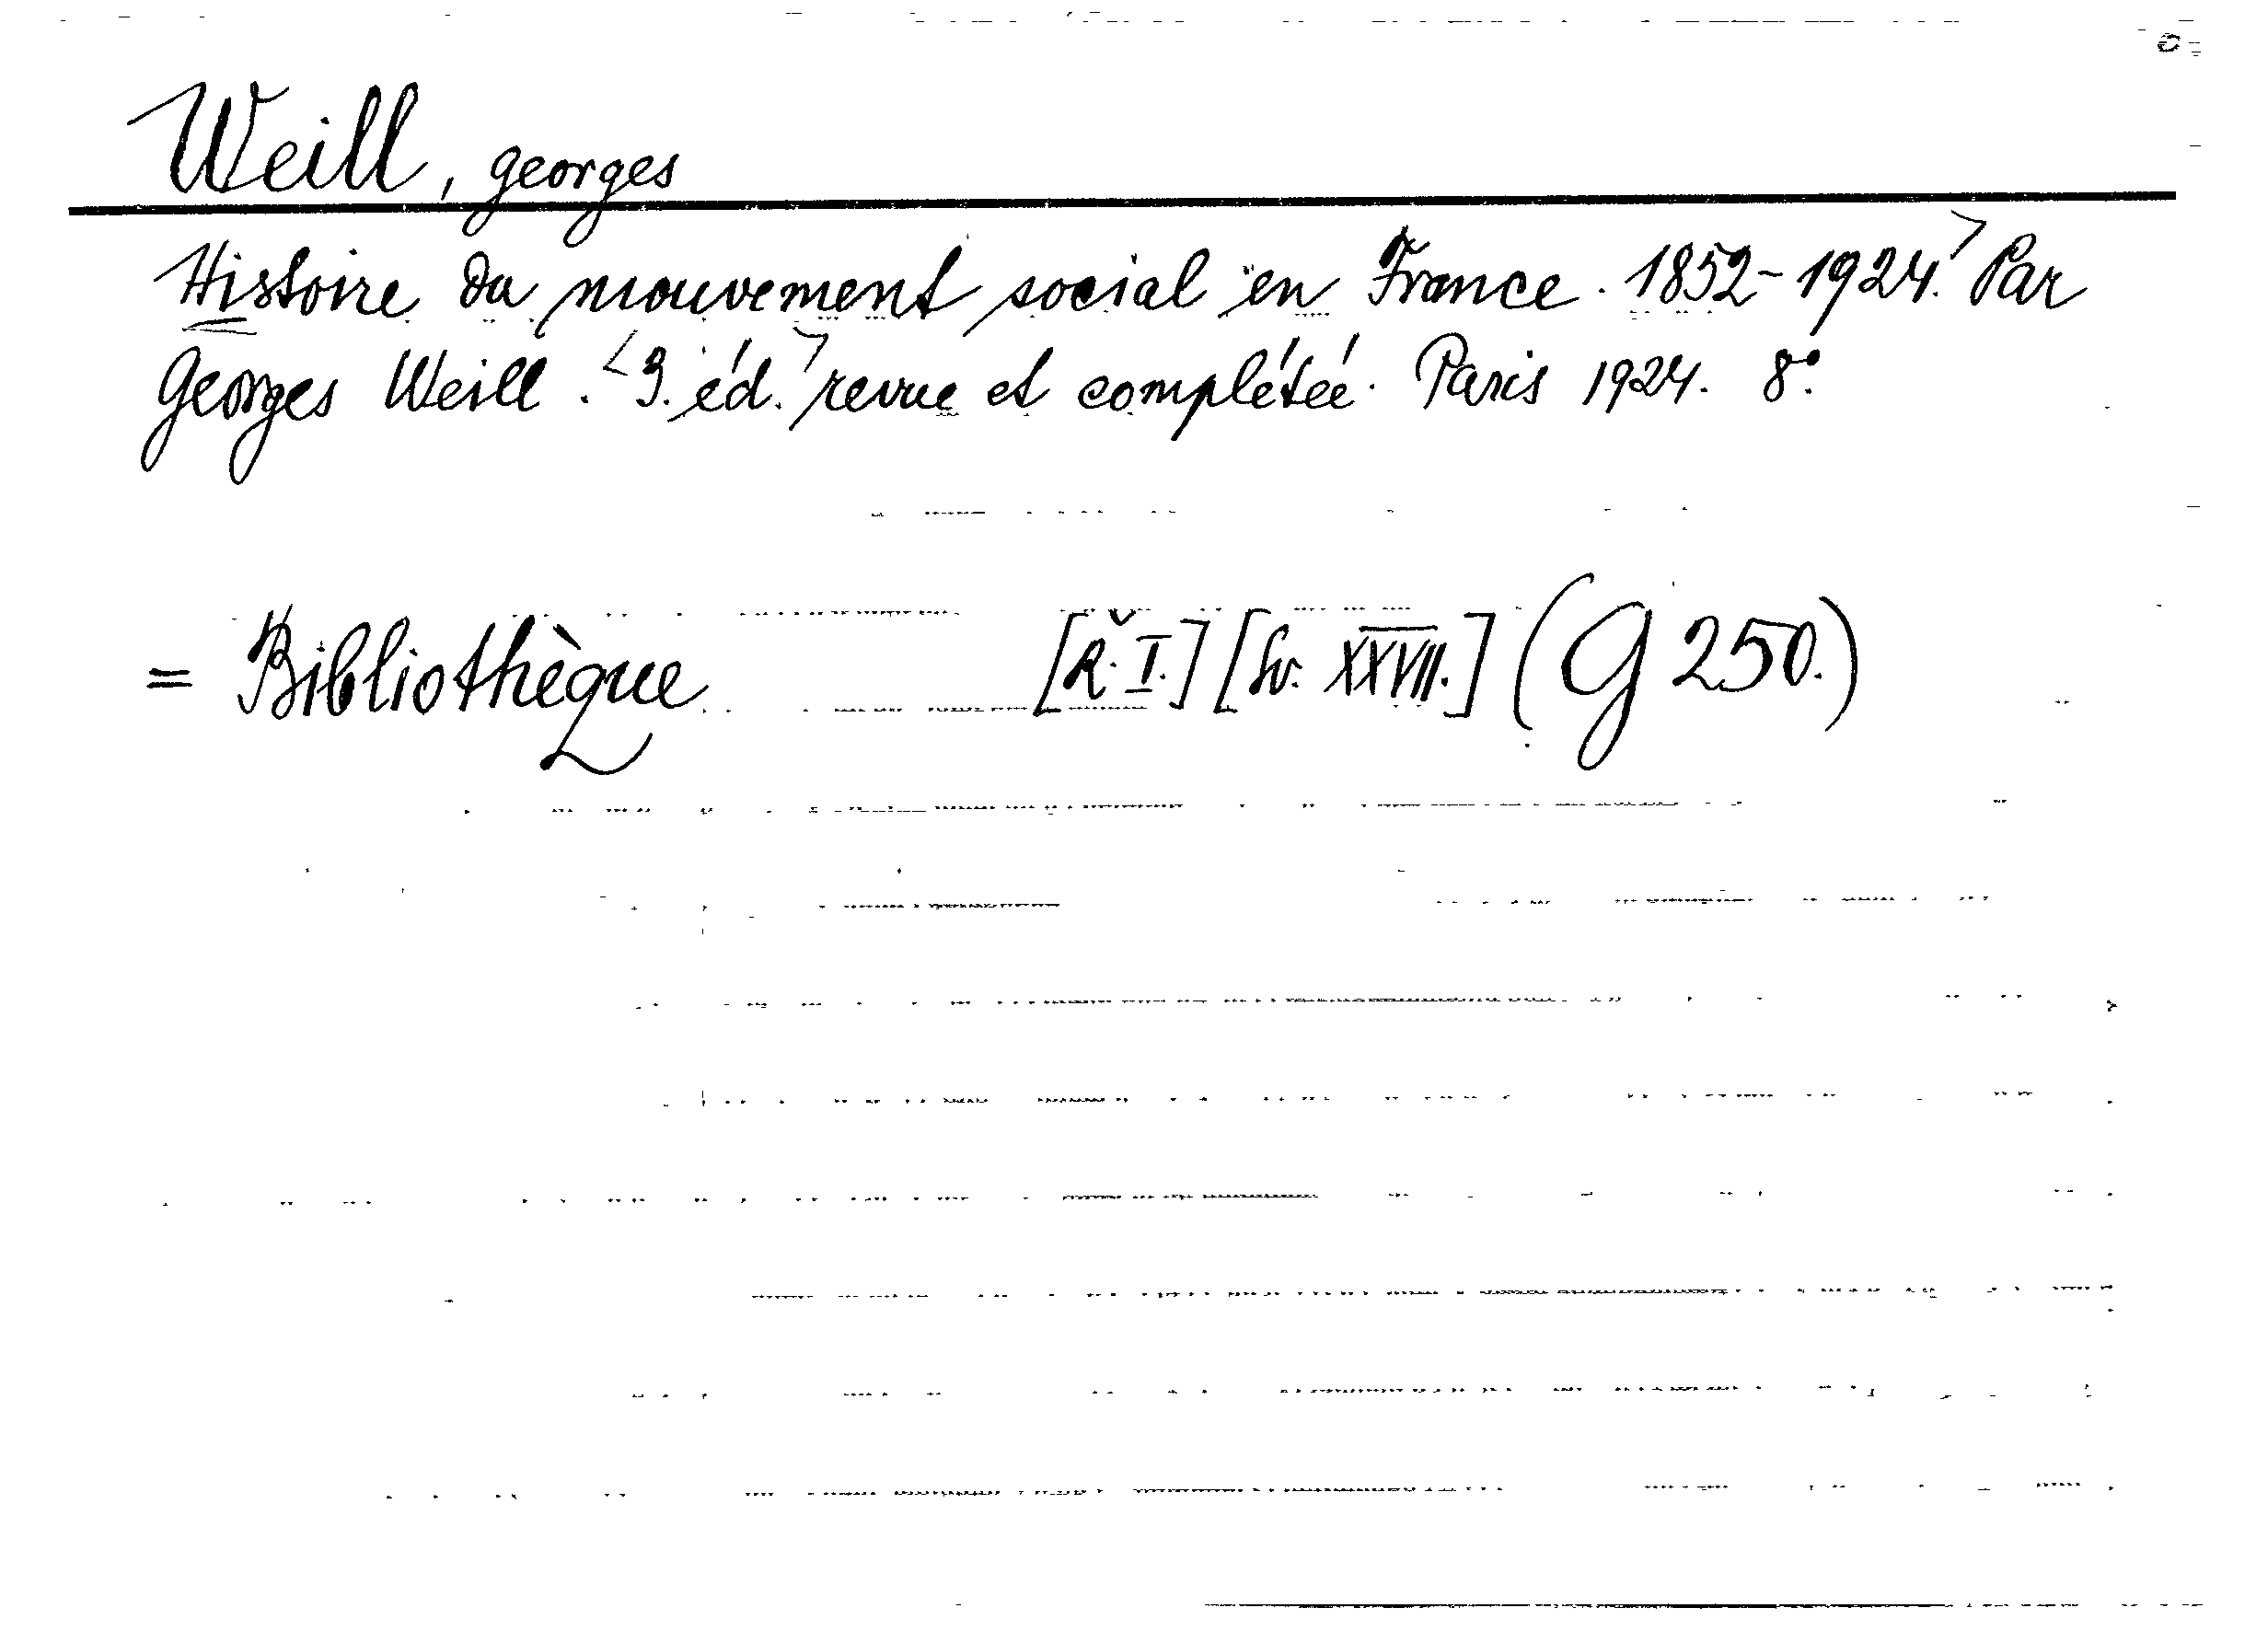 Weill, Georges
Histoire du mouvement social en France. 1852-1924.> Par
Georges Weill. <3. éd.> revue et complétée. Paris 1924. 8°.
= Bibliothèque [Ř. I.] [Sv. XXVII.] (G 250.)